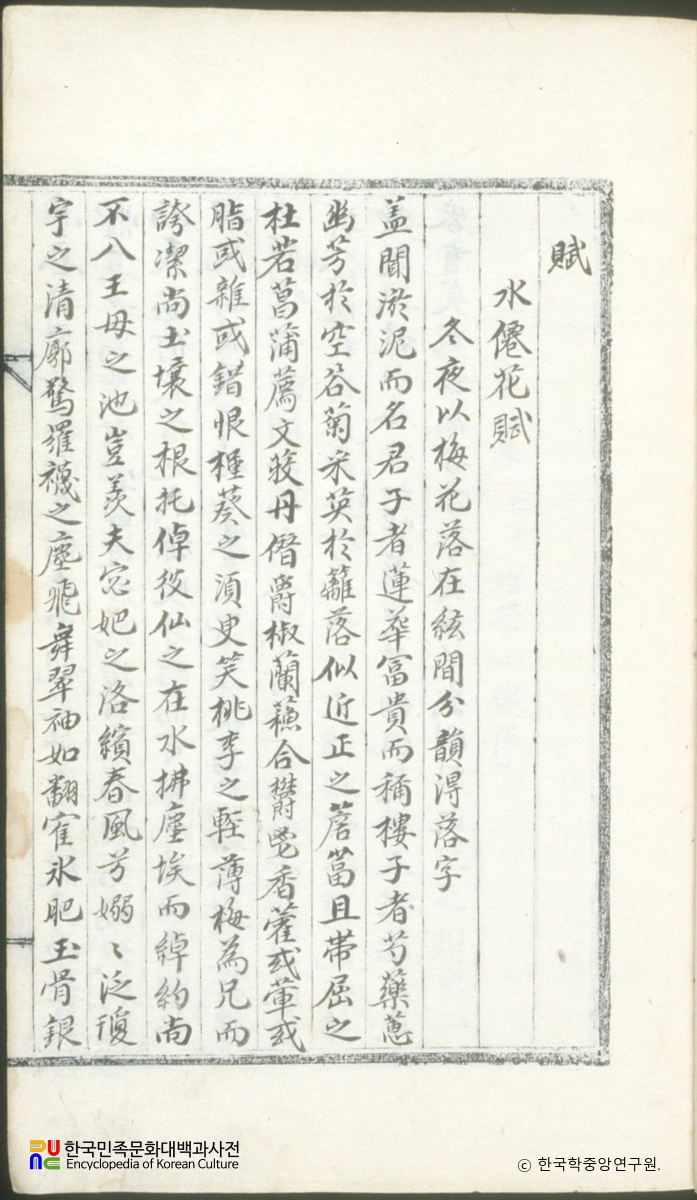 賦
水僊花賦
冬夜以梅花落在絃間分韻淂落字
盖聞淤泥而名君子者蓮華冨貴而稱樓子者芍藥蕙
幽芳於空谷菊米英於籬落似近正之蓎葍且帶屈之
杜若菖蒲薦文莈丹僭爵椒蘭蘓合欝鬯香藿或葷或
脂或雜或錯恨種葵之湏叟笑桃李之輕薄梅為兄而
誇潔尚土壤之根托倬彼仙之在水拂塵埃而綽約尚
不八王母之池豈羡夫宓妃之洛繽春風芳嫋〻泛瓊
宇之清廓驚羅襪之塵飛舞翠袖如翻寉氷肥玉骨銀
한국민족문화대백과사전
Encyclopedia of Korean Culture
ⓒ 한국학중앙연구원.